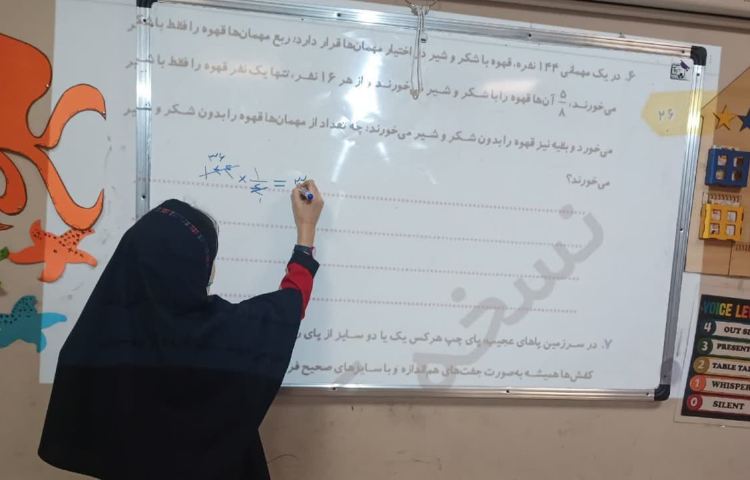 ۶. در یک مهمانی ۱۴۴ نفره، قهوه با شکر و شیر در اختیار مهمان‌ها قرار دارد؛ ربع مهمان‌ها قهوه را فقط با شکر
می‌خورند، ۵/۸ آن‌ها قهوه را با شکر و شیر می‌خورند و از هر ۱۶ نفر، تنها یک نفر قهوه را فقط با شیر
می‌خورد و بقیه نیز قهوه را بدون شکر و شیر می‌خورند؛ چه تعداد از مهمان‌ها قهوه را بدون شکر و شیر
می‌خورند؟
۲۶
۳۶
× ۱ =
۱
۷. در سرزمین پاهای عجیب، پای چپ هر کس یک یا دو سایز از پای
کفش‌ها همیشه به‌صورت جفت‌های هم‌اندازه و با سایزهای صحیح
نسخه
VOICE LE
4 OUT S
3 PRESENT
2 TABLE TA
1 WHISPER
0 SILENT